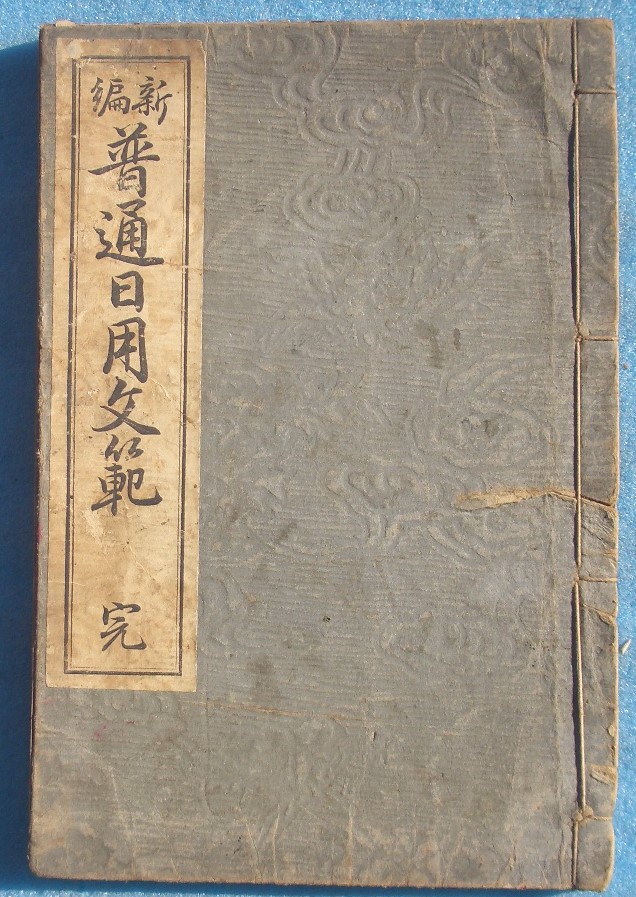 新編
普通日用文範
完